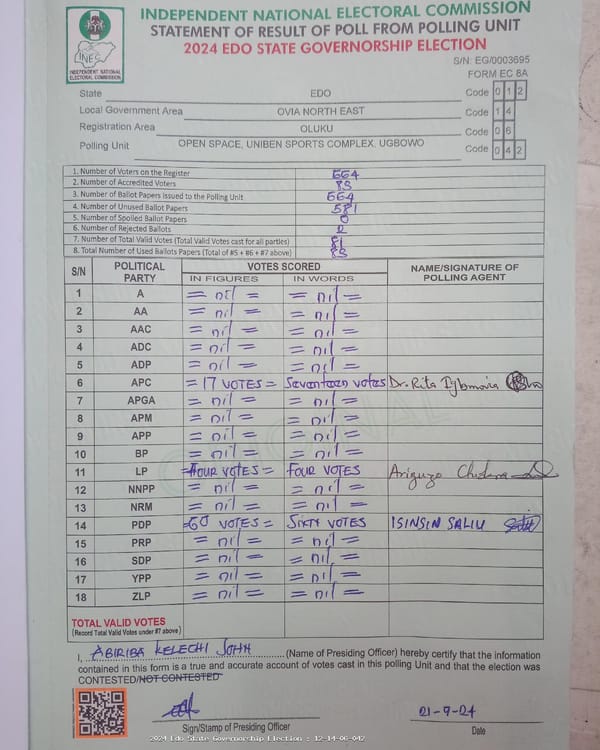 INDEPENDENT NATIONAL ELECTORAL COMMISSION
STATEMENT OF RESULT OF POLL FROM POLLING UNIT
2024 EDO STATE GOVERNORSHIP ELECTION
INEC
INDEPENDENT NATIONAL ELECTORAL COMMISSION
S/N: EG/0003695
FORM EC 8A
State EDO Code 0 1 2
Local Government Area OVIA NORTH EAST Code 1 4
Registration Area OLUKU Code 0 6
Polling Unit OPEN SPACE, UNIBEN SPORTS COMPLEX, UGBOWO Code 0 4 2
1. Number of Voters on the Register 664
2. Number of Accredited Voters 83
3. Number of Ballot Papers Issued to the Polling Unit 664
4. Number of Unused Ballot Papers 581
5. Number of Spoiled Ballot Papers 0
6. Number of Rejected Ballots 2
7. Number of Total Valid Votes (Total Valid Votes cast for all parties) 81
8. Total Number of Used Ballots Papers (Total of #5 + #6 + #7 above) 83
S/N POLITICAL PARTY VOTES SCORED NAME/SIGNATURE OF POLLING AGENT
IN FIGURES IN WORDS
1 A = nil = = nil =
2 AA = nil = = nil =
3 AAC = nil = = nil =
4 ADC = nil = = nil =
5 ADP = nil = = nil =
6 APC = 17 VOTES = Seventeen votes Dr. Rita
7 APGA = nil = = nil =
8 APM = nil = = nil =
9 APP = nil = = nil =
10 BP = nil = = nil =
11 LP VOTES = FOUR VOTES Ariguzo
12 NNPP = nil = = nil =
13 NRM = nil = = nil =
14 PDP =60 VOTES = SIXTY VOTES ISINSIN SALIU
15 PRP = nil = = nil =
16 SDP = nil = = nil =
17 YPP = nil = = nil =
18 ZLP = nil = = nil =
TOTAL VALID VOTES
(Record Total Valid Votes under #7 above)
I, ABIRIBA KELECHI JOHN (Name of Presiding Officer) hereby certify that the information
contained in this form is a true and accurate account of votes cast in this polling Unit and that the election was
CONTESTED/NOT CONTESTED
21-9-24
Sign/Stamp of Presiding Officer Date
2024 Edo State Governorship Election : 12-14-06-042